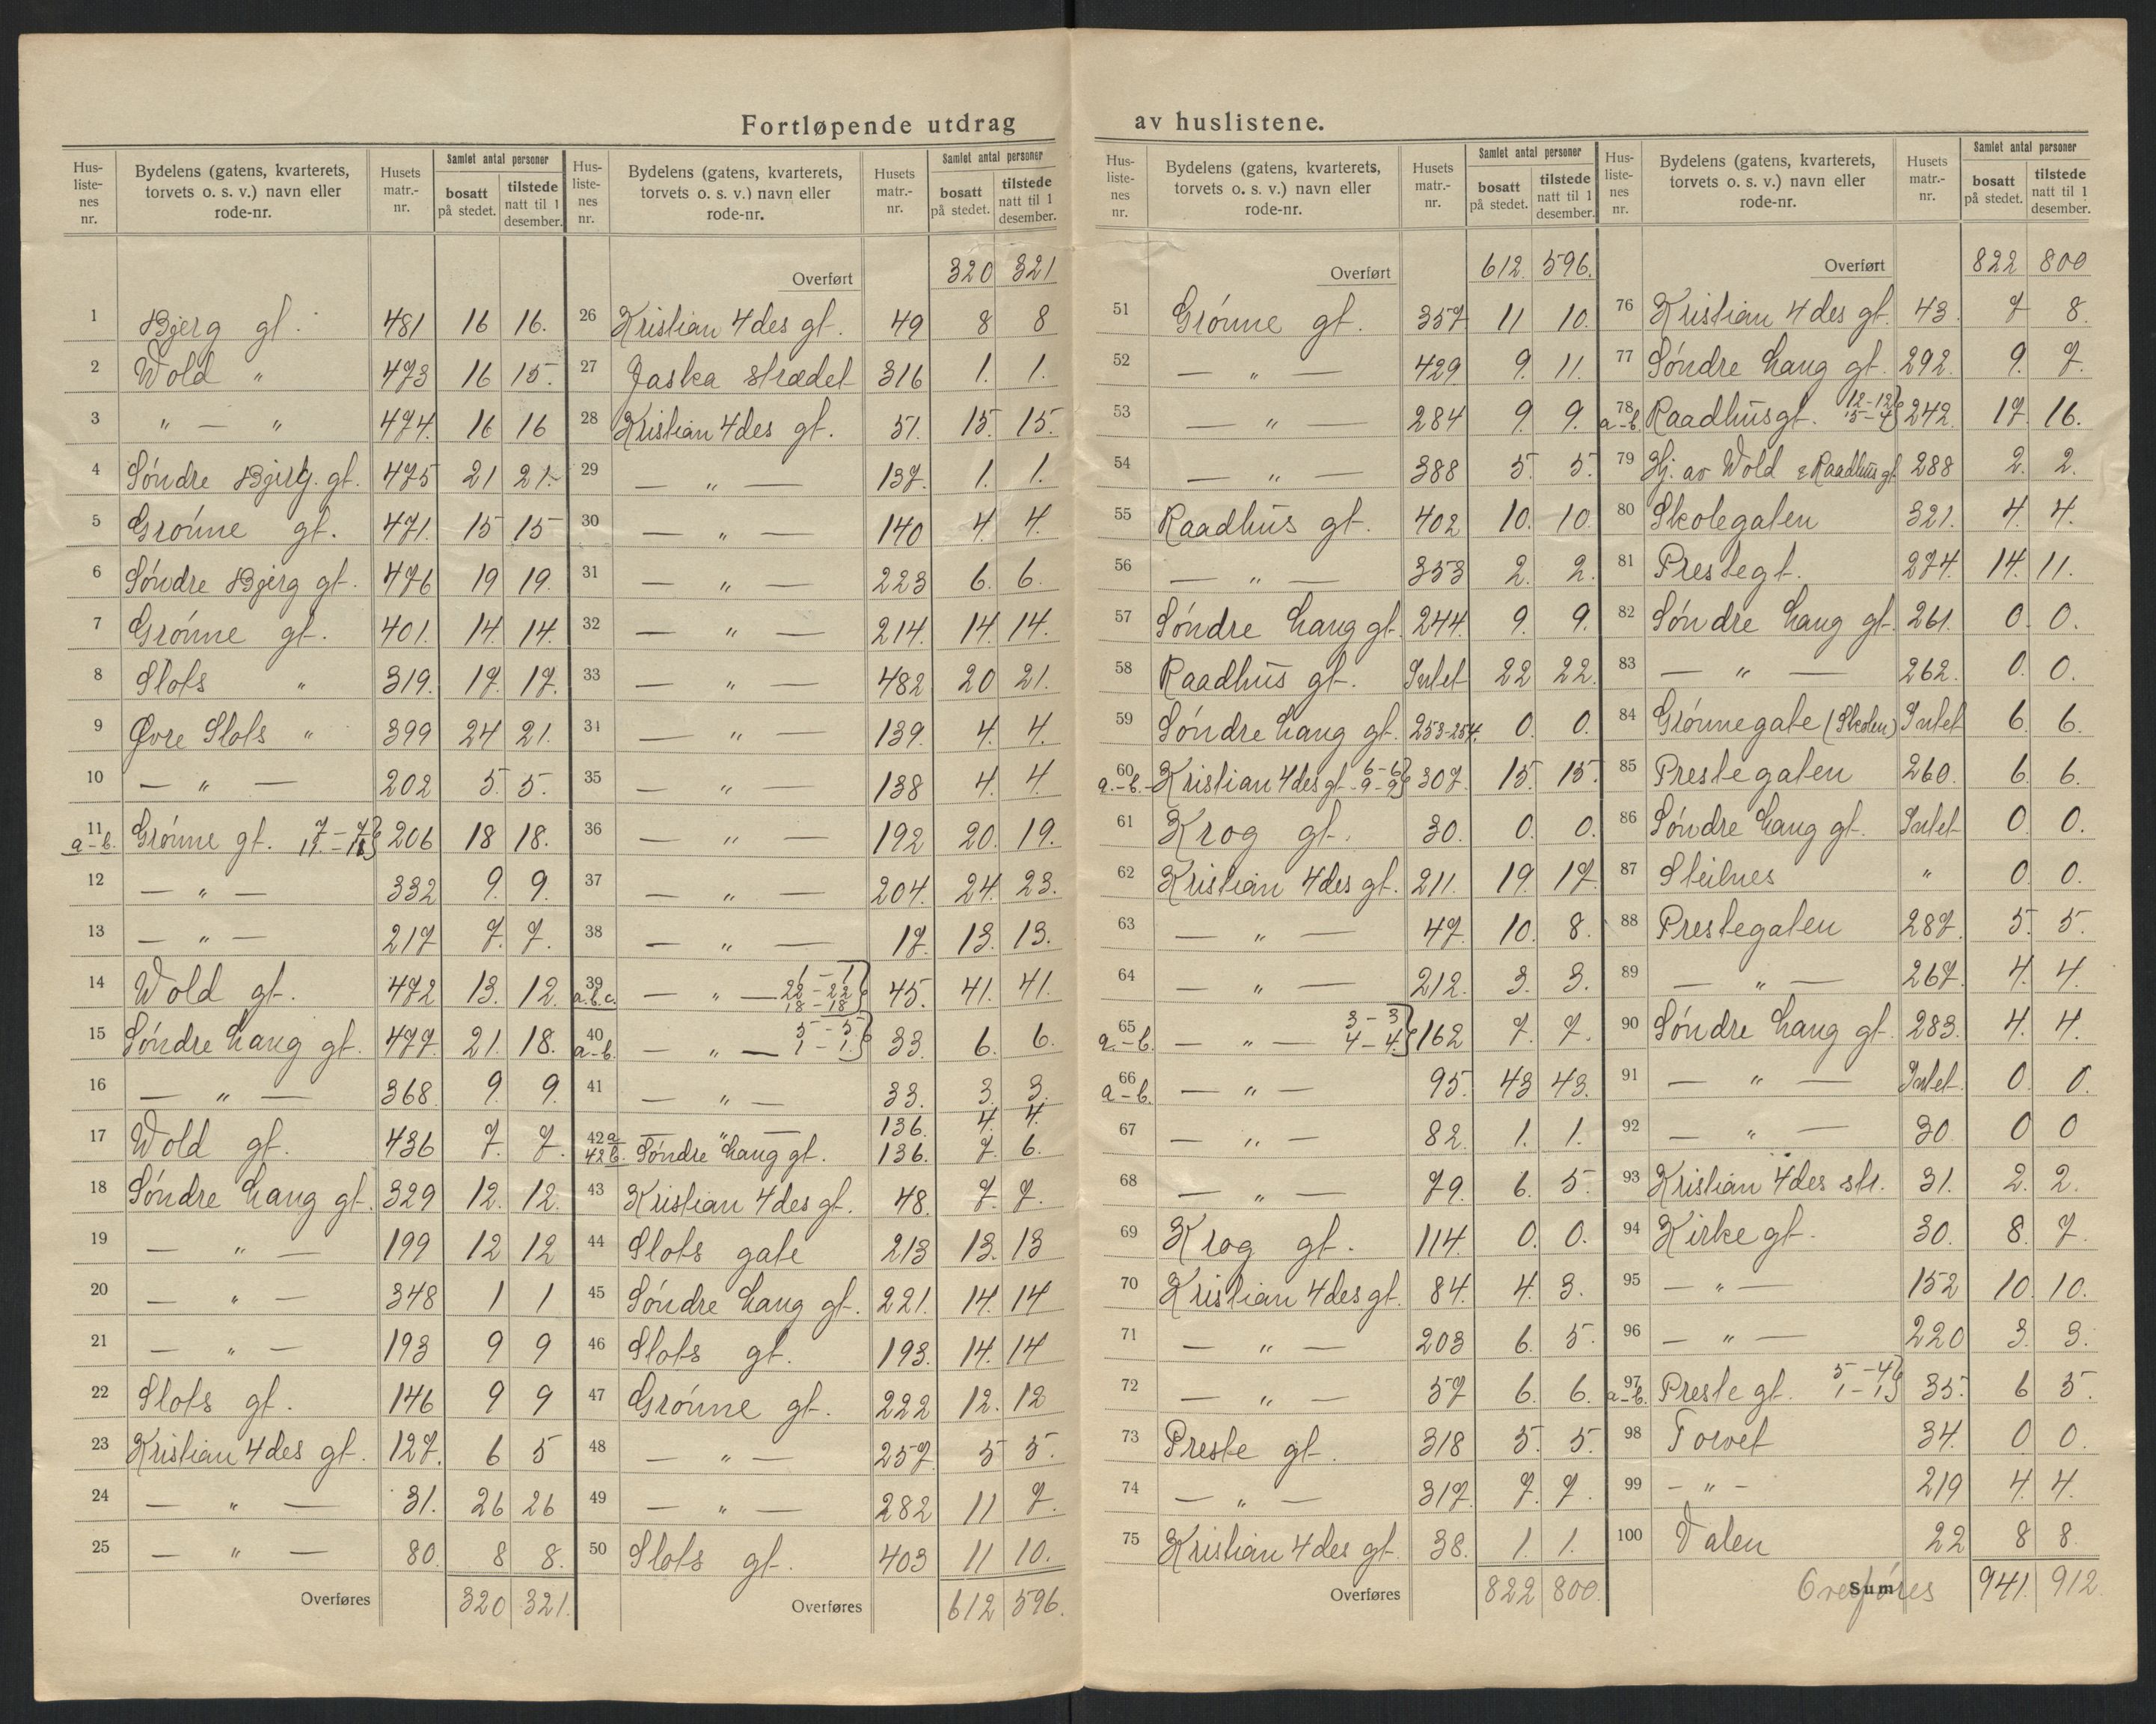 Fortløpende utdrag av huslistene.
Hus-liste-nes nr. | Bydelens (gatens, kvarterets, torvets o. s. v.) navn eller rode-nr. | Husets matr.-nr. | Samlet antal personer | bosatt på stedet. | tilstede natt til 1 desember.
1 Bjerg gt. 481 16 16.
2 Wold " 473 16 15.
3 " — " 474. 16 16
4 Søndre Bjerg. gt. 475 21 21.
5 Grønne gt. 471. 15 15
6 Søndre Bjerg gt. 476 19 19.
7 Grønne gt. 401. 14. 14.
8 Slots " 319. 17. 17.
9 Øvre Slots " 399 24 21.
10 — " — 202 5. 5.
11 a-b. Grønne gt. 206 18 18.
12 — " — 332 9. 9.
13 — " — 217 7. 7.
14 Wold gt. 472 13. 12.
15 Søndre Langgt. 477. 21. 18.
16 — " — 368 9. 9.
17 Wold gt. 436 7. 7.
18 Søndre Lang gt. 329 12. 12.
19 — " — 199 12 12
20 — " — 348 1 1
21 — " — 193 9 9
22 Slots gt. 146 9 9
23 Kristian 4des gt. 127. 6 5
24 — " — 31. 26 26
25 — " — 80. 8 8.
Overføres 320 321.
Hus-liste-nes nr. | Bydelens (gatens, kvarterets, torvets o. s. v.) navn eller rode-nr. | Husets matr.-nr. | Samlet antal personer | bosatt på stedet. | tilstede natt til 1 desember.
Overført 320 321
26 Kristian 4des gt. 49 8 8
27 Jaska strædet 316 1. 1.
28 Kristian 4des gt. 51. 15. 15.
29 — " — 137. 1. 1.
30 — " — 140 4. 4.
31 — " — 223 6. 6.
32 — " — 214. 14. 14.
33 — " — 482 20 21.
34 — " — 139. 4. 4.
35 — " — 138 4. 4.
36 — " — 192 20. 19.
37 — " — 204. 24. 23.
38 — " — 17. 13. 13.
39 a.b.c. — " — 1-1 22-22 18-18 45. 41. 41.
40 a-b. — " — 5-5 1-1. 33. 6. 6.
41 — " — 33. 3. 3.
42a — " — 136. 4. 4.
42b. Søndre Lang gt. 136. 7. 6.
43 Kristian 4des gt. 48. 7. 7.
44 Slots gate 213 13. 13
45 Søndre Lang gt. 221. 14. 14
46 Slots gt. 193. 14. 14
47 Grønne gt. 222 12. 12
48 — " — 257 5 5.
49 — " — 282 11 7.
50 Slots gt. 403 11 10.
Overføres 612 596.
Hus-liste-nes nr. | Bydelens (gatens, kvarterets, torvets o. s. v.) navn eller rode-nr. | Husets matr.-nr. | Samlet antal personer | bosatt på stedet. | tilstede natt til 1 desember.
Overført 612. 596.
51 Grønne gt. 357 11 10.
52 — " — 429 9. 11.
53 — " — 284 9. 9.
54 — " — 388 5. 5.
55 Raadhus gt. 402 10. 10.
56 — " — 353 2. 2.
57 Søndre Lang gt. 244. 9. 9.
58 Raadhus gt. Intet 22 22.
59 Søndre Lang gt. 253-254. 0. 0.
60 a.-b. Kristian 4des gt. 6-6 9-9 307. 15. 15.
61 Krog gt. 30. 0. 0.
62 Kristian 4des gt. 211. 19. 17.
63 — " — 47. 10. 8.
64 — " — 212. 3. 3.
65 a.-b. — " — 3-3 4-4. 162 7. 7.
66 a-b. — " — 95. 43 43.
67 — " — 82. 1. 1.
68 — " — 79. 6. 5.
69 Krog gt. 114. 0. 0.
70 Kristian 4des gt. 84. 4. 3.
71 — " — 203 6. 5.
72 — " — 57 6. 6.
73 Preste gt. 318 5. 5.
74 — " — 317. 7. 7.
75 Kristian 4des gt. 38. 1. 1.
Overføres 822 800.
Hus-liste-nes nr. | Bydelens (gatens, kvarterets, torvets o. s. v.) navn eller rode-nr. | Husets matr.-nr. | Samlet antal personer | bosatt på stedet. | tilstede natt til 1 desember.
Overført 822 800
76 Kristian 4des gt. 43. 7 8.
77 Søndre Lang gt. 292. 9. 7.
78 a-b. Raadhusgt. 12-12 5-4 242. 17. 16.
79 Hj. av Wold & Raadhus gt. 288 2. 2.
80 Skolegaten 321. 4. 4.
81 Prestegt. 274. 14. 11.
82 Søndre Lang gt. 261. 0. 0.
83 — " — 262. 0. 0.
84 Grønnegate (Skolen) Intet 6. 6.
85 Prestegaten 260. 6. 6.
86 Søndre Lang gt. Intet 0. 0.
87 Steilnes " 0. 0.
88 Prestegaten 287. 5. 5.
89 — " — 267. 4. 4.
90 Søndre Lang gt. 283. 4. 4.
91 — " — Intet. 0. 0.
92 — " — 30. 0 0
93 Kristian 4des str. 31. 2. 2.
94 Kirke gt. 30. 8. 7.
95 — " — 152 10. 10.
96 — " — 220 3. 3.
97 a-b. Preste gt. 5-4 1-1 35. 6 5.
98 Torvet 34. 0 0.
99 — " — 219 4. 4.
100 Valen 22 8 8.
Sum Overføres 941. 912.